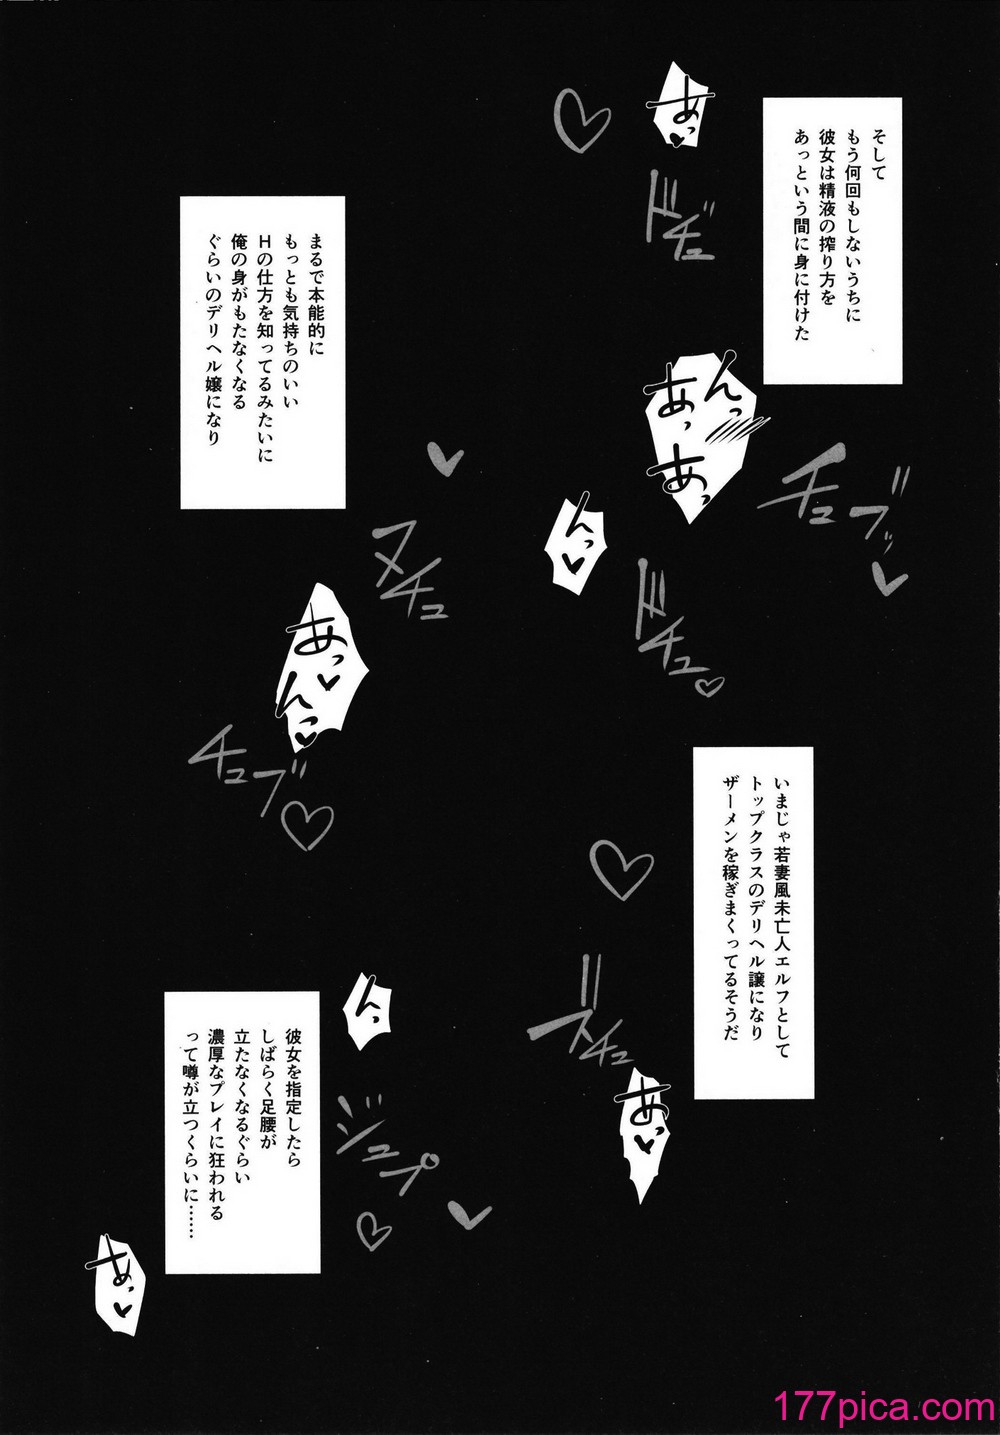 そして
もう何回もしないうちに
彼女は精液の搾り方を
あっという間に身に付けた
あっ♥
ドチュ
んっ
あっ
あぁっ
チュブッ
んっ♥
ドチュ
まるで本能的に
もっとも気持ちのいい
Hの仕方を知ってるみたいに
俺の身がもたなくなる
ぐらいのデリヘル嬢になり
ヌチュ
あっ♥
んっ♥
チュブ
いまじゃ若妻風未亡人エルフとして
トップクラスのデリヘル譲になり
ザーメンを稼ぎまくってるそうだ
ズチュ
あっ♥
んっ
ジュプ
彼女を指定したら
しばらく足腰が
立たなくなるぐらい
濃厚なプレイに狂われる
って噂が立つくらいに……
あっ♥
177pica.com